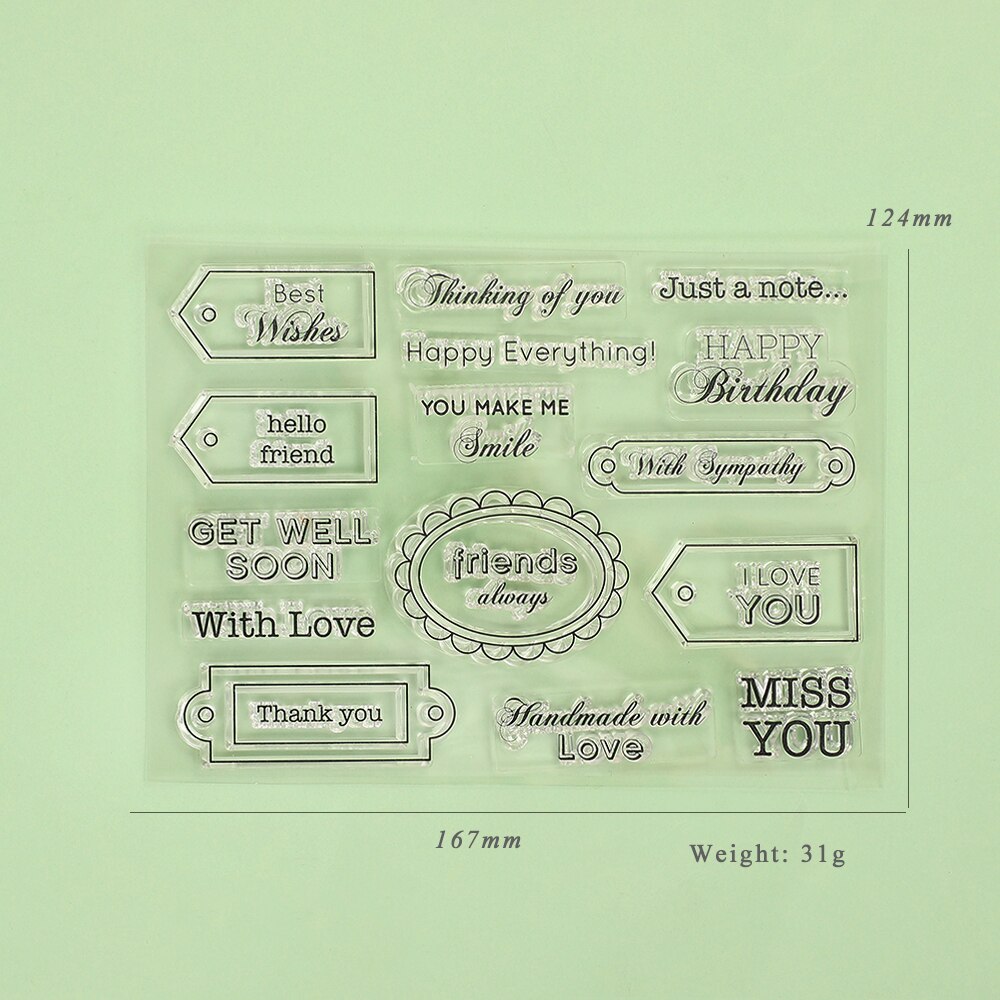 124mm
Best
Wishes
Thinking of you
Just a note...
Happy Everything!
HAPPY
Birthday
hello
friend
YOU MAKE ME
Smile
With Sympathy
GET WELL
SOON
friends
always
I LOVE
YOU
With Love
Thank you
Handmade with
Love
MISS
YOU
167mm
Weight: 31g